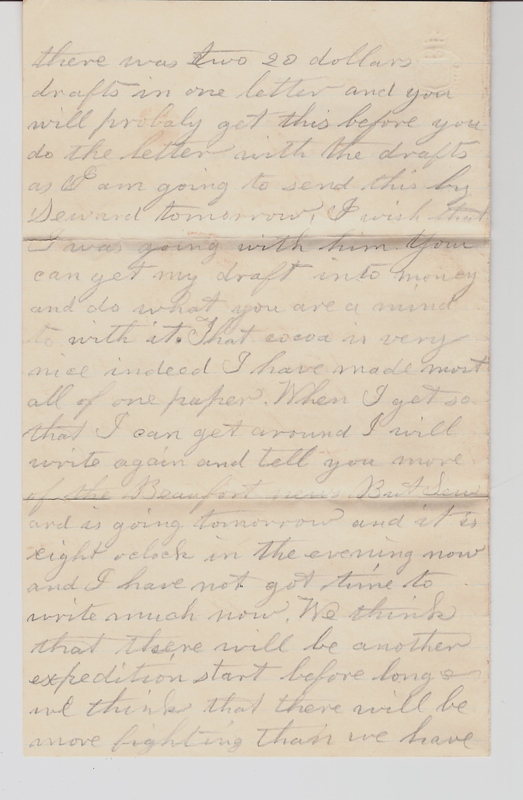 there was two 20 dollars
drafts in one letter and you
will probaly get this before you
do the letter with the drafts
as I am going to send this by
Seward tomorrow, I wish that
I was going with him. You
can get my draft into money
and do what you are a mind
to with it. That cocoa is very
nice indeed I have made most
all of one paper. When I get so
that I can get around I will
write again and tell you more
of the Beaufort news But Sew
ard is going tomorrow and it is
eight oclock in the evening now
and I have not got time to
write much now. We think
that there will be another
expedition start before long &
we think that there will be
more fighting than we have